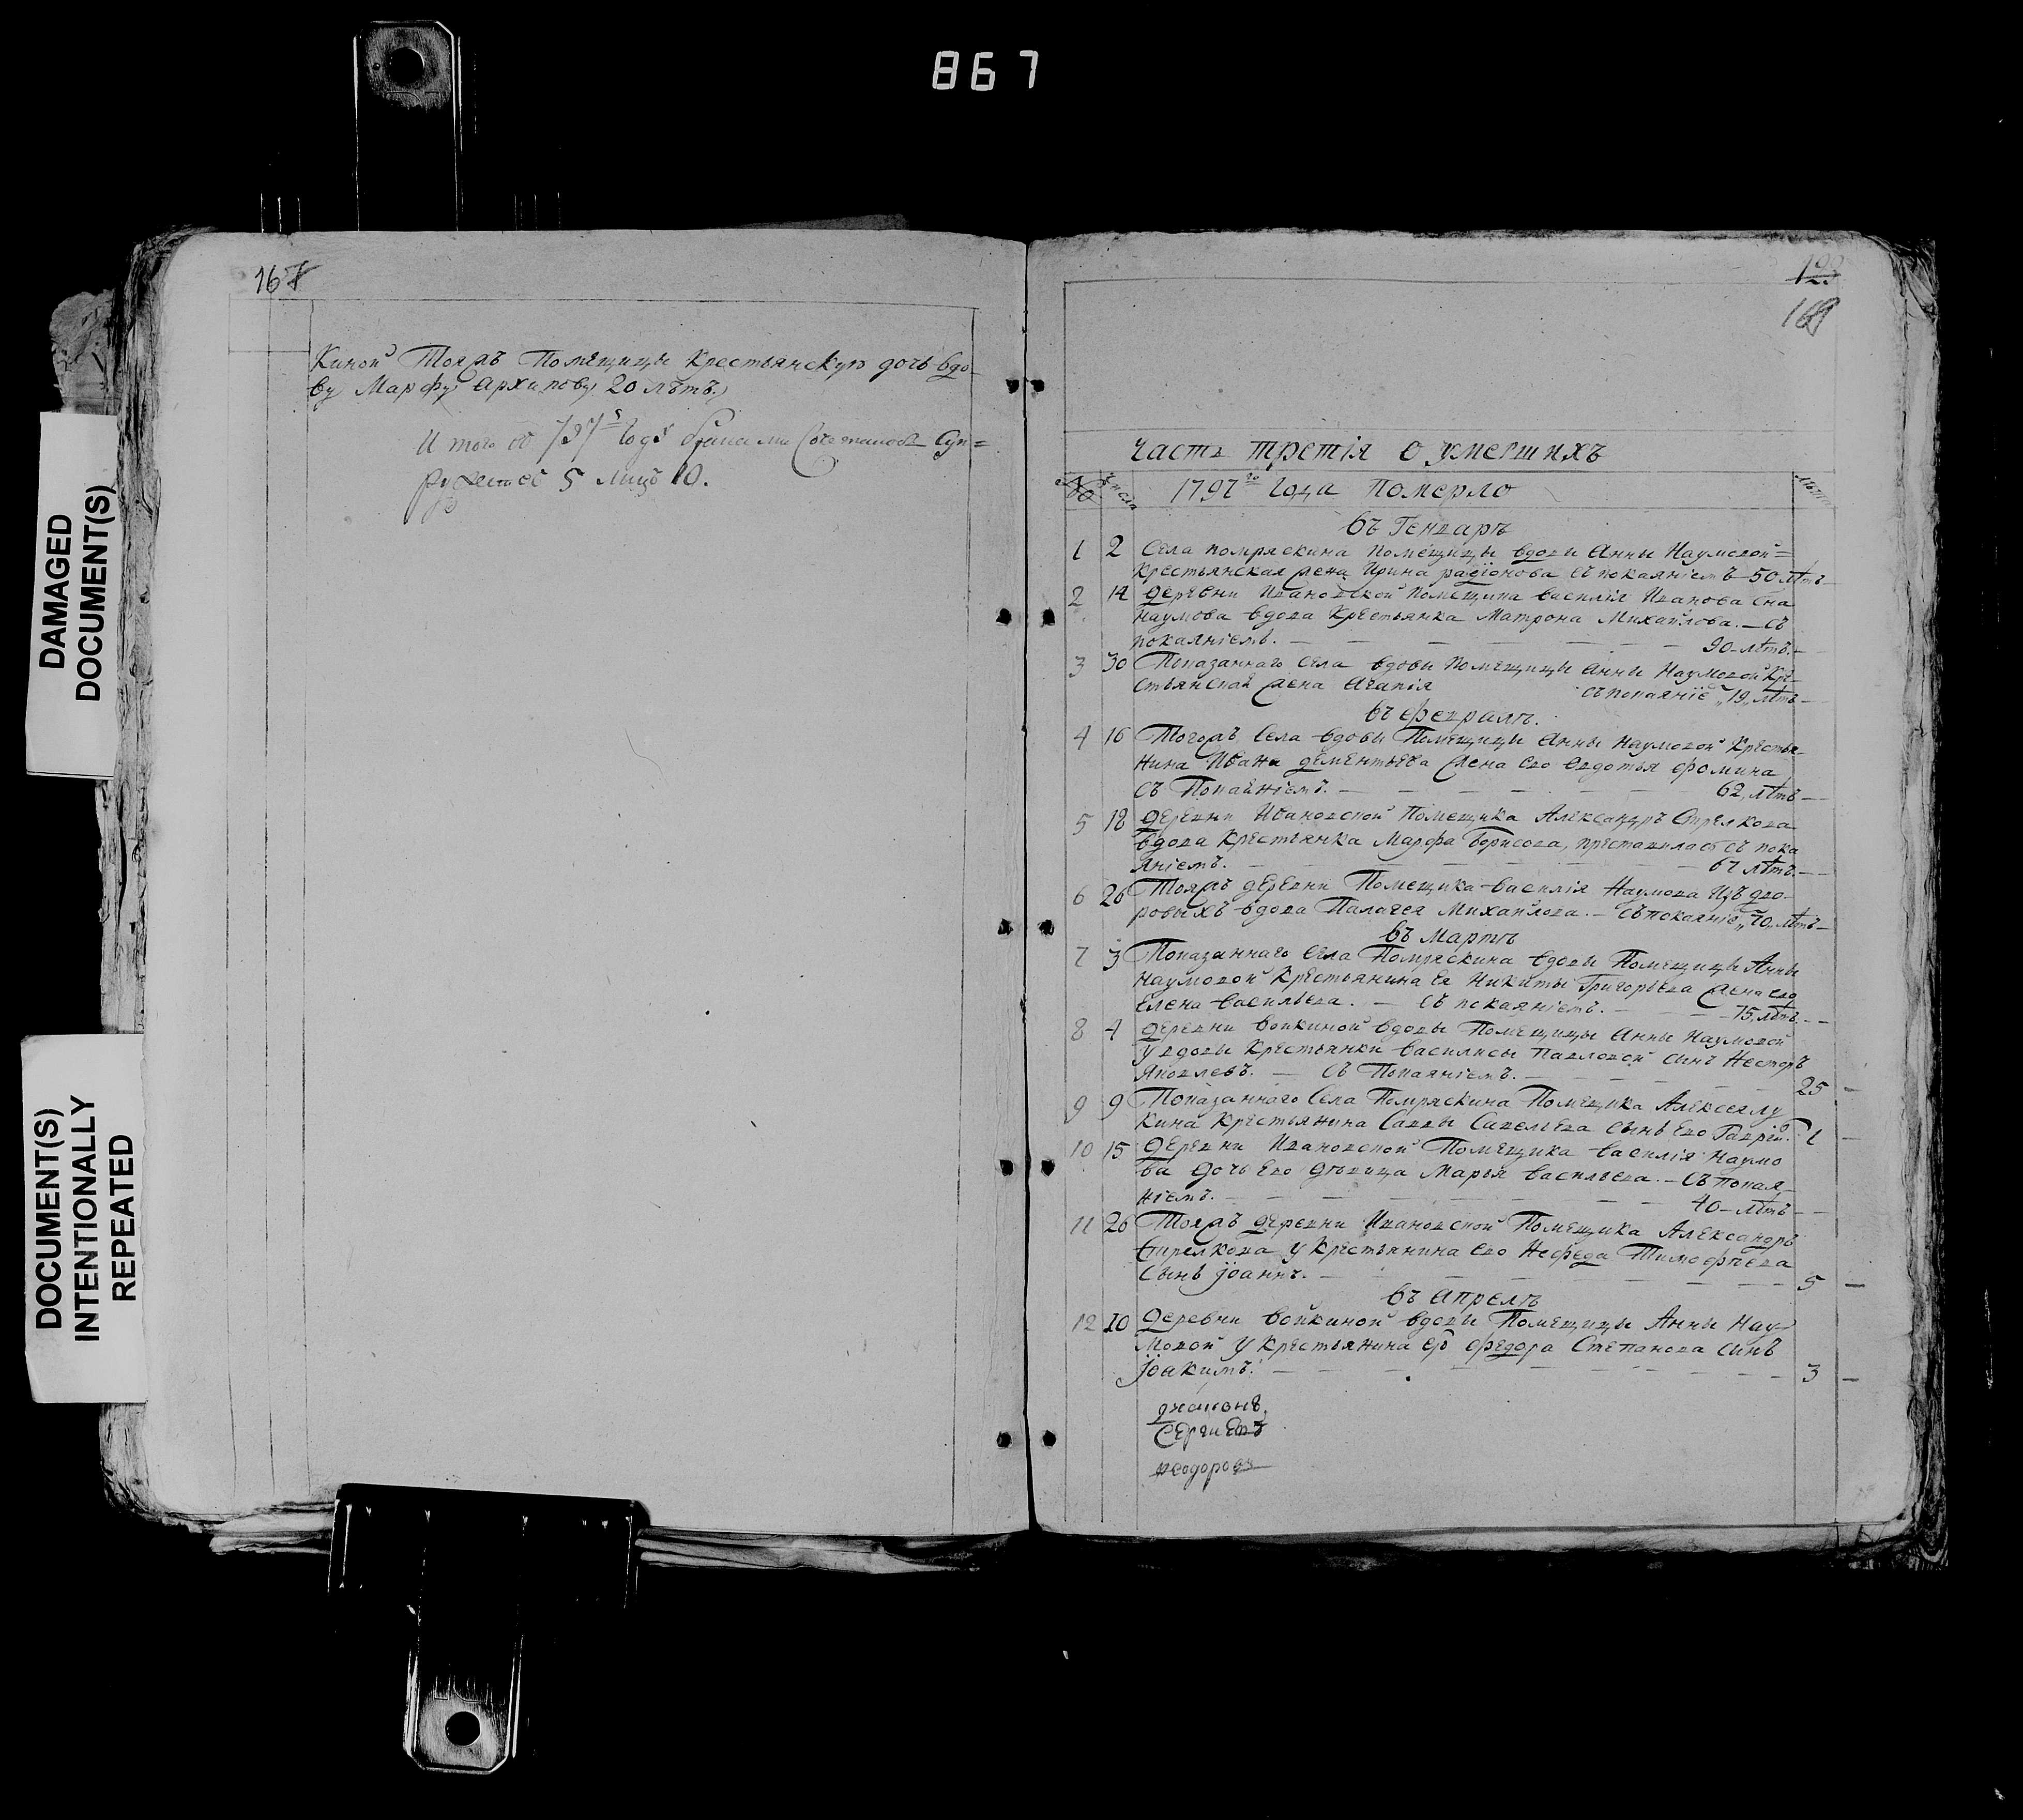 867
DAMAGED
DOCUMENT(S)
DOCUMENT(S)
INTENTIONALLY
REPEATED
167
Киной Тояжъ Помѣщицы крестьянскую дочь вдо-
ву Марфу Архипову 20 лѣтъ,
И того въ 797 годѣ браками сочеталось Суп=
ружествъ 5 лицъ 10.
часть третія о умершихъ
№ числа 1797го Года померло лѣта
въ Генваръ
1 2 Села помряскина помещицы вдовы Анны Наумовой=
крестьянская жена Ирина радіонова съ покаяніемъ-50 лѣтъ
2 14 деревни Ивановской помещика василія Иванова сна
наумова вдова крестьянка Матрона Михайлова.-съ
покаяніемъ. 90 лѣтъ.
3 30 Показаннаго села вдовы помещицы анны Наумовой кре-
стьянской жена Агапія съ покаяніе 19, лѣтъ
въ февралѣ.
4 16 Тогожъ села вдовы Помещицы Анны наумовой крестья-
нина Ивана дементьева жена ево евдотья фомина
съ Покаяніемъ. 62, лѣтъ
5 18 деревни Ивановской Помещика Александръ Стрелкова
вдова крестьянка Марфа борисова, преставилась съ пока
яніемъ. 67 лѣтъ.
6 26 Тояжъ деревни Помещика василія Наумова Изъ дво-
ровыхъ вдова Палагея Михайлова.- съ покаяніе, 70, лѣтъ
въ Мартѣ
7 3 Показаннаго села Помряскина вдовы Помещицы Анны
наумовой крестьянина ея Никиты Григорьева жена ево
елена васильева. - съ покаяніемъ. 75, лѣтъ.
8 4 деревни войкиной вдовы Помещицы Анны Наумовой
у вдовы крестьянки василисы павловой сынъ Несторъ
Яковлевъ. - съ Покаяніемъ. 25
9 9 Показаннаго Села Помряскина Помещика Алексея лу
кина крестьянина Саввы Савельева сынъ ево Гаврій. 1
10 15 деревни Ивановской Помещика василія наумо
ва дочь ево дѣвица Марья васильева.-съ покая
ніемъ. 40-лѣтъ
11 26 Тояжъ деревни Ивановской Помещика Александръ
Стрелкова у крестьянина ево Нефеда Тимофѣева
сынъ Іоаннъ. 5
въ Апрелѣ
12 10 деревни войкиной вдовы Помещицы Анны Нау-
мовой у крестьянина ея федора Степанова сынъ
Іоакимъ. 3
дкаконъ
Сергиевъ